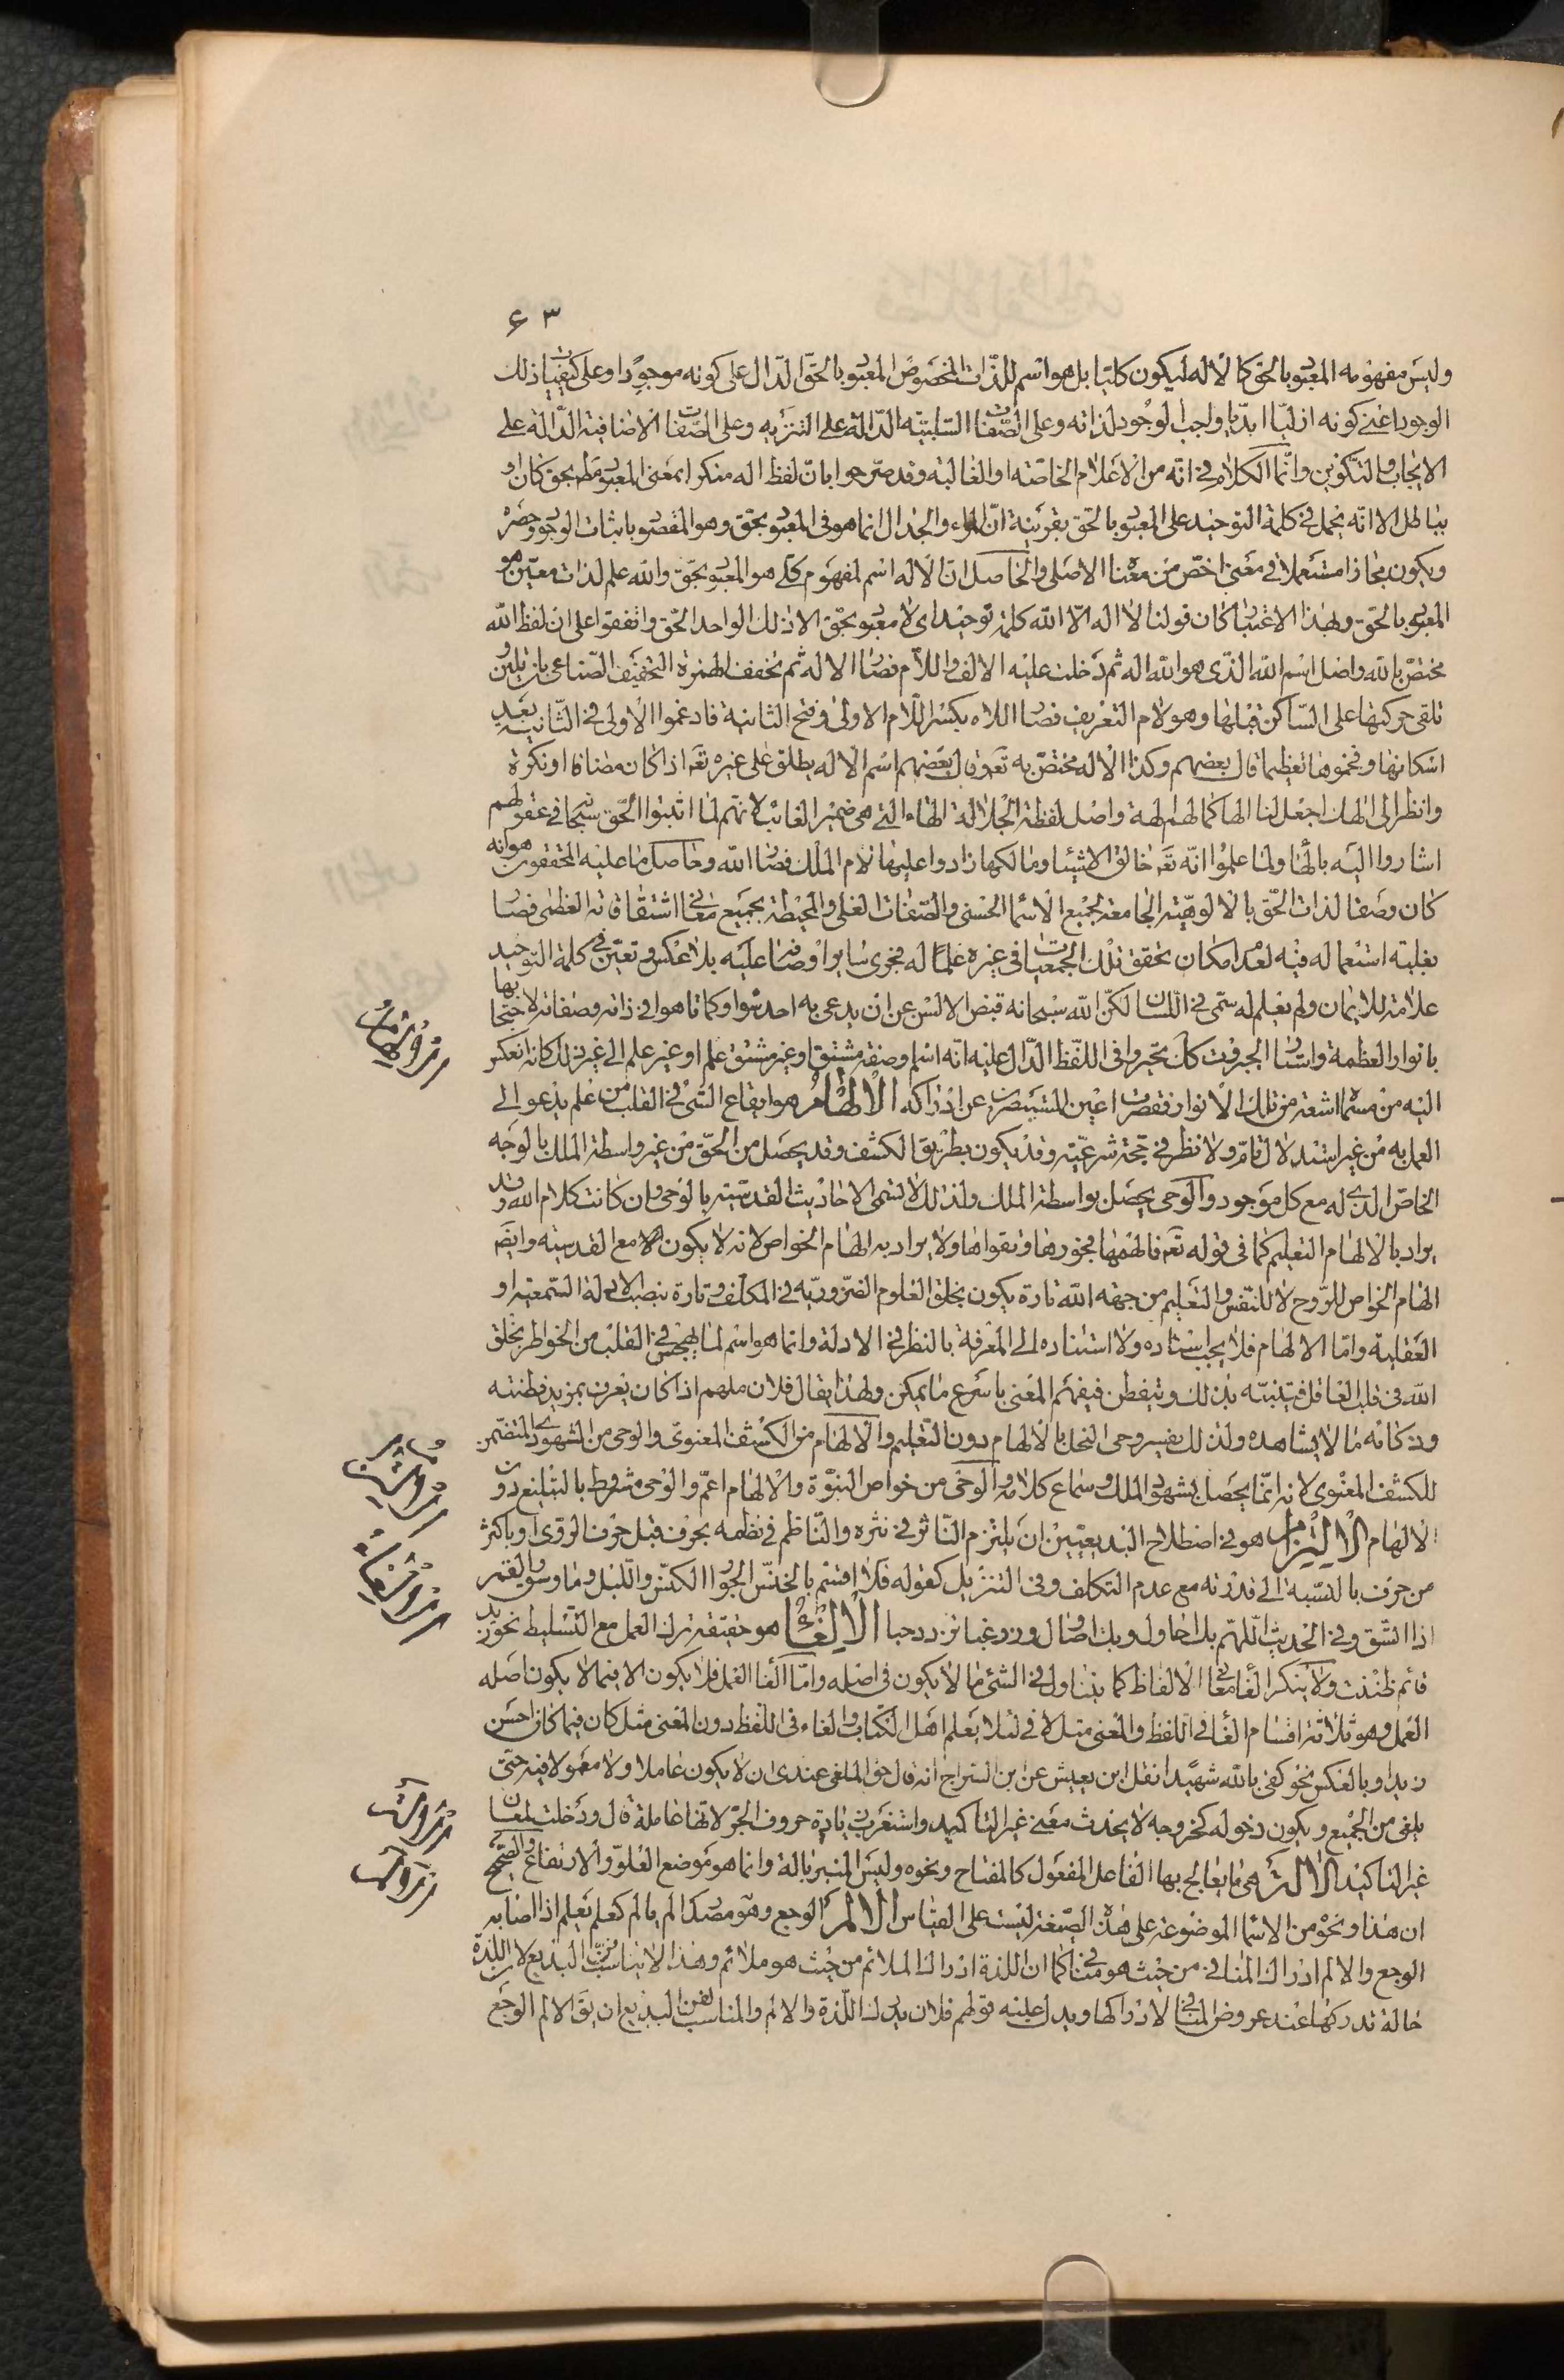 ٦٣
وليس مفهومه المعبود بالحق كالاله ليكون كليا بل هو اسم للذات المخصوص المعبود بالحق الدال على كونه موجودا وعلى كيفيات ذلك
الوجود اعنى كونه ازليا ابديا واجب الوجود لذاته وعلى الصفات السلبيه الدالة على التنزيه وعلى الصفات الاضافية الدالة على
الايجاد والتكوين وانما الكلام فى انه من الاعلام الخاصة او الغالبة وقد صرحوا بان لفظ اله منكرا بمعنى المعبود مطلقا بحق كان او
بباطل الا انه يحمل فى كلمة التوحيد على المعبود بالحق بقرينة ان المراء والجدال انما هو فى المعبود بحق وهو المقصود باثبات الوجود وحصره
ويكون مجازا مستعملا فى معنى اخص من معناه الاصلى والحاصل ان الاله اسم لمفهوم كلى هو المعبود بحق والله علم لذات معين هو
المعبود بالحق وبهذا الاعتبار كان قولنا لا اله الا الله كلمة توحيد اى لا معبود بحق الا ذلك الواحد الحق واتفقوا على ان لفظ الله
مختص بالله واصل اسم الله الذى هو الله اله ثم دخلت عليه الالف واللام فصار الاله ثم تخفف الهمزة التخفيف الصناعى بان تلين و
تلقى حركتها على الساكن قبلها وهو لام التعريف فصار اللاه بكسر اللام الاولى وفتح الثانية فادغموا الاولى فى الثانية بعد
اسكانها وفخموها تعظيما قال بعضهم وكذا الاله مختص به تعه وقال بعضهم اسم الاله يطلق على غيره تعه اذا كان مضافا او نكرة
وانظر الى الهك اجعل لنا الها كما لهم الهة واصل لفظة الجلالة الهاء التى هى ضمير الغائب لانهم لما اثبتوا الحق سبحانه فى عقولهم
اشاروا اليه بالهاء ولما علموا انه تعه خالق الاشياء ومالكها زادوا عليها لام الملك فصار الله وحاصل ما عليه المحققون هو انه
كان وصفا لذات الحق بالالوهية الجامعة لجميع الاسماء الحسنى والصفات العلى والمحيطة بجميع معانى اشتقاقاته العظمى فصار
بغلبة استعماله فيه لعدم امكان تحقق تلك الجمعيات فى غيره علما له فجرى سائر اوصافه عليه بلا عكس وتعين فى كلمة التوحيد
علامة للايمان ولم يعلم له سمى فى اللسان لكن الله سبحانه قبض الالسن عن ان يدعى به احد سواه وكما تاهوا فى ذاته وصفاته لاحتجابها
بانوار العظمة واستار الجبروت كك تحيروا فى اللفظ الدال عليه انه اسم او صفة مشتق او غير مشتق علم او غير علم الى غير ذلك كانه انعكس
اليه من مسماه اشعة من تلك الانوار فقصرت اعين المستبصرين عن ادراكه الالهام هو ايقاع الشئ فى القلب من علم يدعو الى
العمل به من غير استدلال تام ولا نظر فى حجة شرعية وقد يكون بطريق الكشف وقد يحصل من الحق من غير واسطة الملك بالوجه
الخاص الذى له مع كل موجود والوحى يحصل بواسطة الملك ولذلك لا تسمى الاحاديث القدسيه بالوحى وان كانت كلام الله وقد
يراد بالالهام التعليم كما فى قوله تعه فالهمها فجورها وتقواها ولا يراد به الهام الخواص لانه لا يكون الا مع القدسيه وايضا
الهام الخواص للروح لا للنفس والتعليم من جهة الله تارة يكون بخلق العلوم الضروريه فى المكلف وتارة بنصب الادلة السمعية او
العقلية واما الالهام فلا يجب اسناده ولا استناده الى المعرفة بالنظر فى الادلة وانما هو اسم لما يهجس فى القلب من الخواطر بخلق
الله فى قلب العاقل فيتنبه بذلك ويتفطن فيفهم المعنى باسرع ما يمكن ولهذا يقال فلان ملهم اذا كان يعرف بمزيد فطنته
وذكائه ما لا يشاهده ولذلك يفسر وحى النحل بالالهام دون التعليم والالهام من الكشف المعنوى والوحى من الشهودى المتضمن
للكشف المعنوى لانه انما يحصل بشهود الملك وسماع كلامه والوحى من خواص النبوة والالهام اعم والوحى مشروط بالتبليغ دون
الالهام الالتزام هو فى اصطلاح البديعيين ان يلتزم الناثر فى نثره والناظم فى نظمه بحرف قبل حرف الروى او باكثر
من حرف بالنسبة الى قدرته مع عدم التكلف وفى التنزيل كقوله فلا اقسم بالخنس الجوار الكنس والليل وما وسق والقمر
اذا اتسق وفى الحديث اللهم بك احاول وبك اصاول وزر غبا تزدد حبا الالغاء هو حقيقة ترك العمل مع التسليط نحو زيد
قائم ظننت ولا ينكر الغاء معانى الالفاظ كما يتناول فى الشئ ما لا يكون فى اصله واما الغاء العمل فلا يكون الا فيما لا يكون اصله
العمل وهو ثلاثة اقسام الغاء فى اللفظ والمعنى مثل لا فى لئلا يعلم اهل الكتاب والغاء فى اللفظ دون المعنى مثل كان فيما كان احسن
زيدا وبالعكس نحو كفى بالله شهيدا نقل ابن يعيش عن ابن السراج انه قال حق الملغى عندى ان لا يكون عاملا ولا معمولا فيه حتى
يلغى من الجميع ويكون دخوله كخروجه لا يحدث معنى غير التاكيد واستغرب زيادة حروف الجر لانها عاملة قال ودخلت لمعان
غير التاكيد الالة هى ما يعالج بها الفاعل المفعول كالمفتاح ونحوه وليس المنبر بالة وانما هو موضع العلو والارتفاع والصحيح
ان هذا ونحوه من الاسماء الموضوعة على هذه الصيغة ليست على القياس الالم الوجع وهو مصدر الم يالم كعلم يعلم اذا اصابه
الوجع والالم ادراك المنافى من حيث هو مناف كما ان اللذة ادراك الملائم من حيث هو ملائم وهذا لا يناسب فن البديع لان اللذة
حالة تدركها عند عروض المنافى لا ادراكها ويدل عليه قولهم فلان يدرك اللذة والالم والمناسب لفن البديع ان يق الالم الوجع